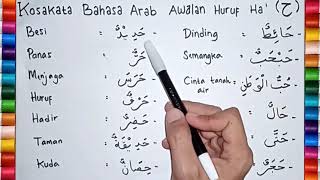 Kosakata Bahasa Arab Awalan Huruf Ha' (ح)
Besi : حَدِيْدٌ
Panas : حَرٌّ
Menjaga : حَرَسَ
Huruf : حَرْفٌ
Hadir : حَضَرَ
Taman : حَدِيْقَةٌ
Kuda : حِصَانٌ
Dinding : حَائِطٌ
Semangka : حَبْحَبٌ
Cinta tanah air : حُبُّ الْوَطَنِ
: حَالٌ
: حَتَّى
: حَجَرٌ